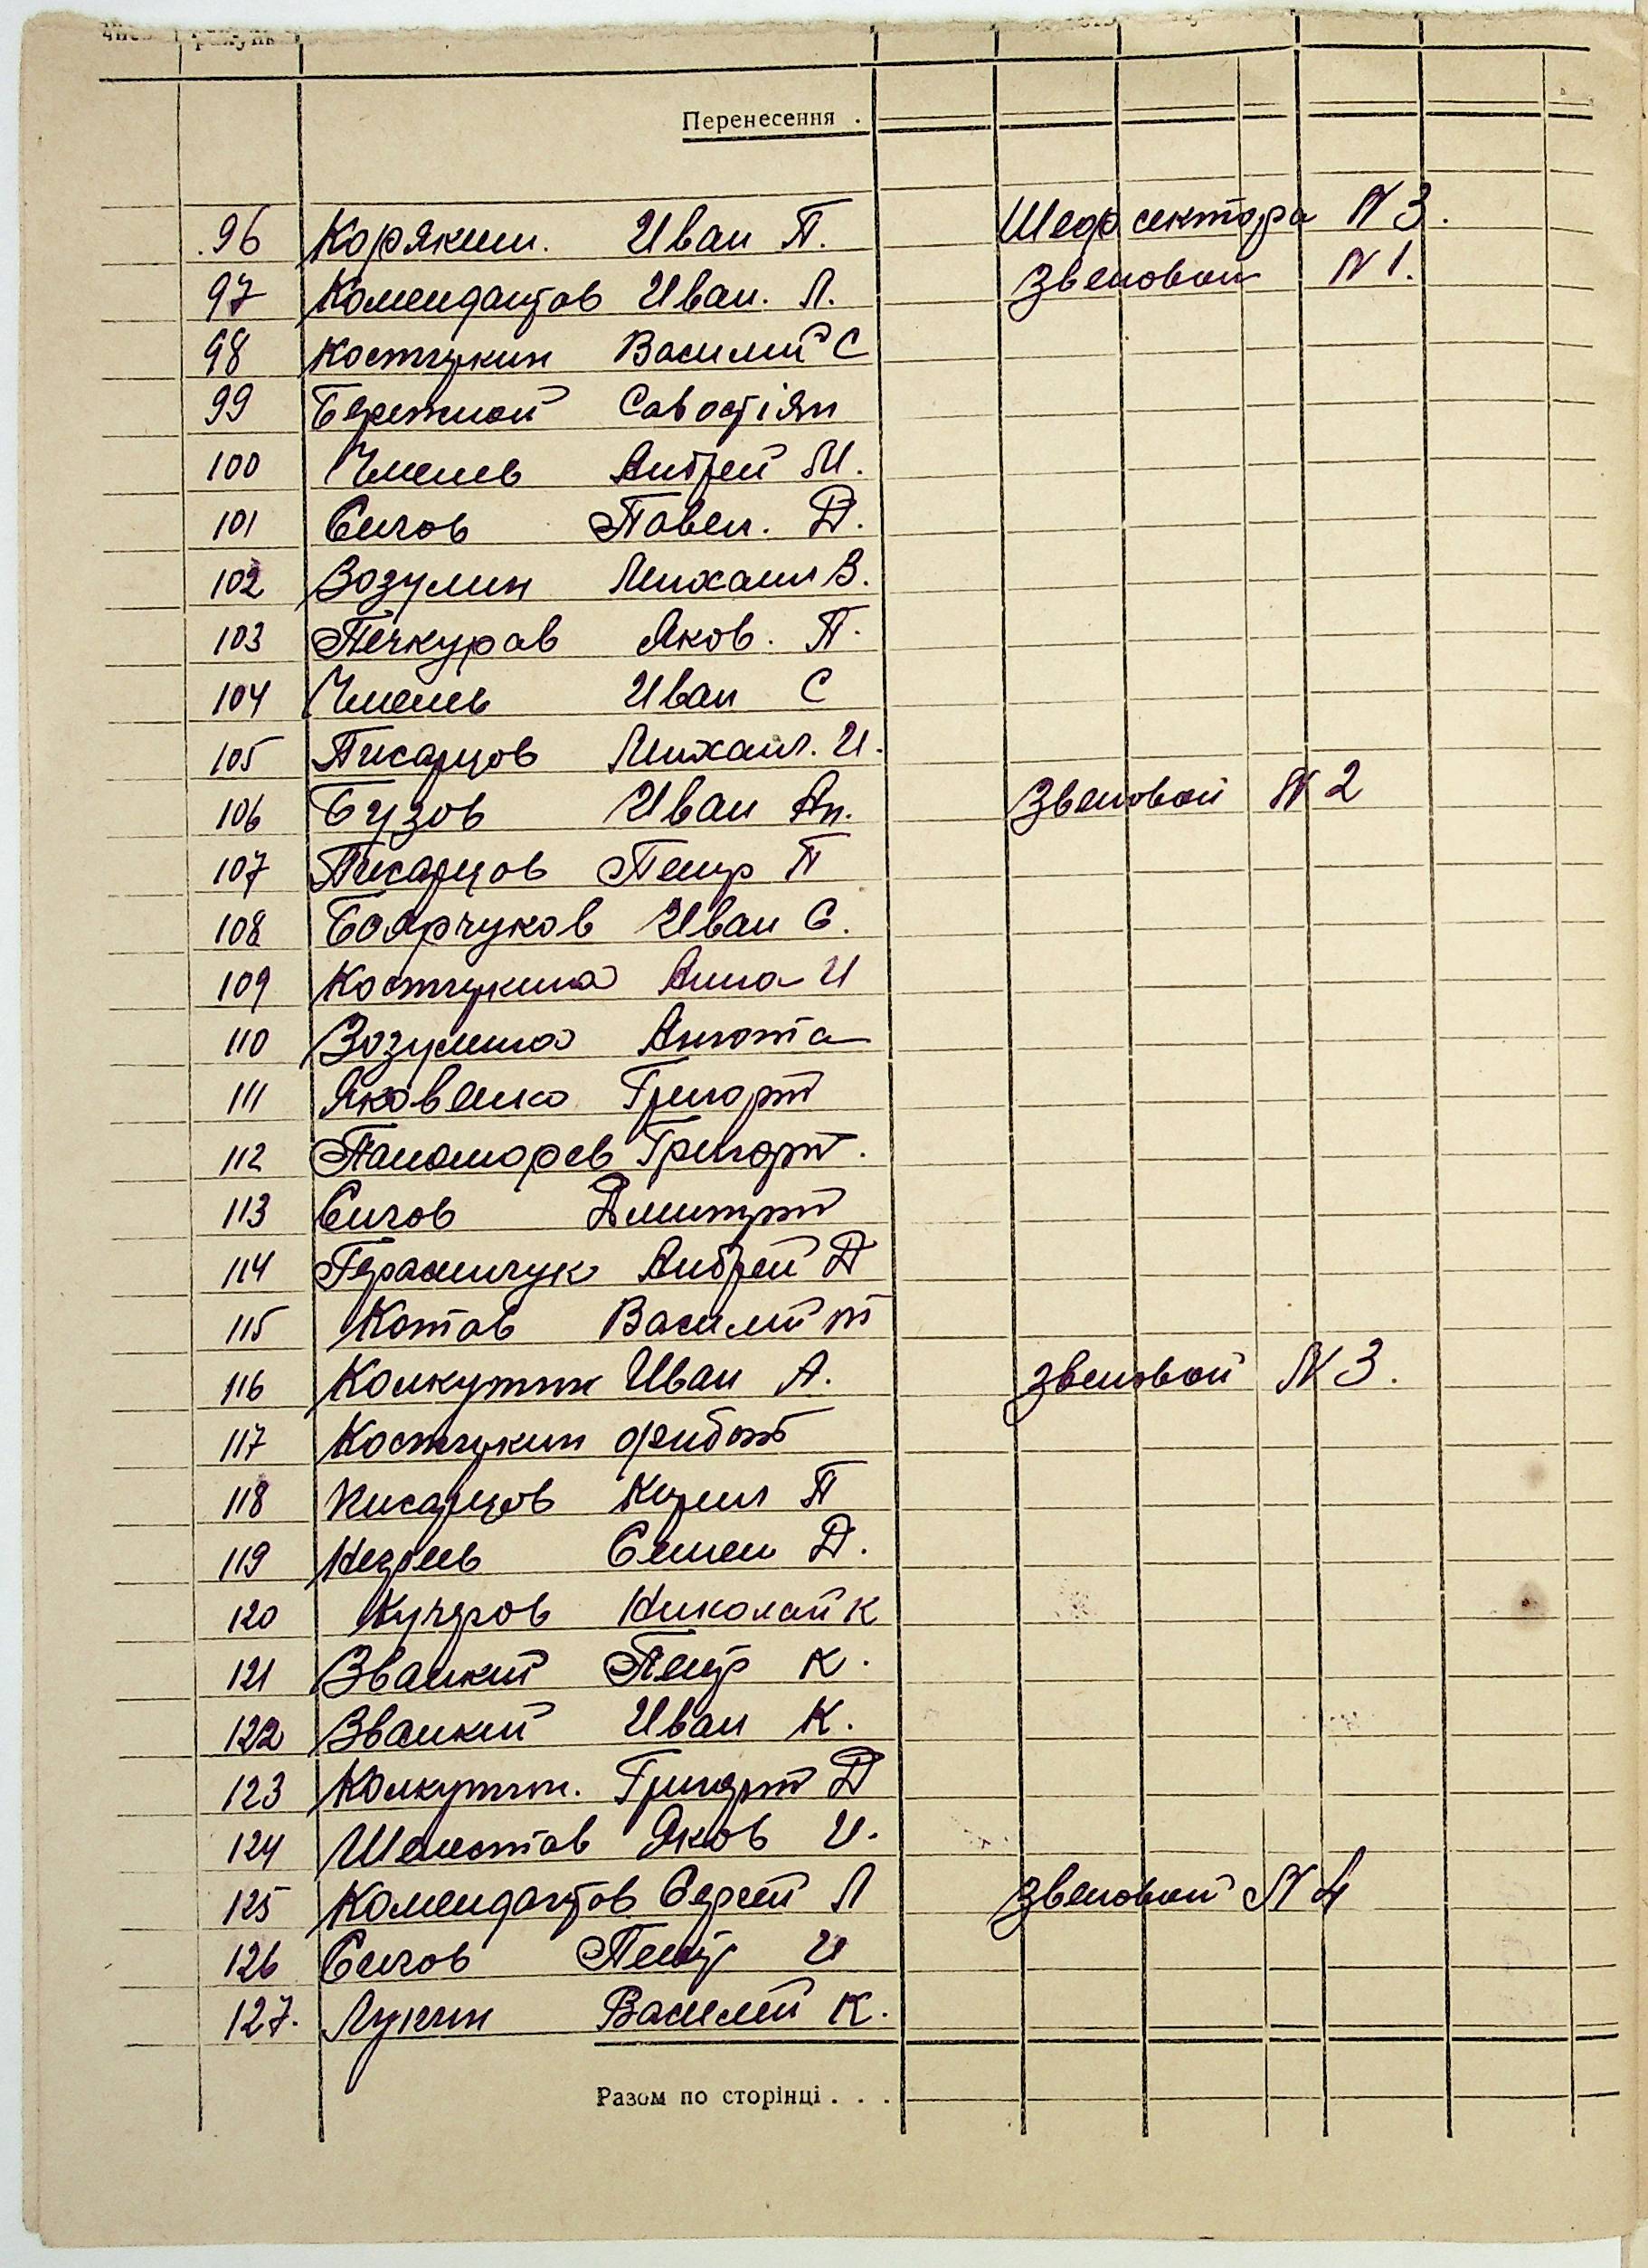 рахунк
Перенесення .
96 Корякин. Иван П. Шеф сектора N 3.
97 Комендантов Иван. Л. Звеновой N 1.
98 Костюкин Василий С
99 Бережной Савостіян
100 Чмелев Андрей М.
101 Сичов Павел. Д.
102 Возулин Михаил В.
103 Печкуров Яков. П.
104 Чмелев Иван С
105 Писарцов Михаил. И.
106 Бузов Иван Ан. Звеновой N 2
107 Писарцов Петр П
108 Боярчуков Иван С.
109 Костюкина Анна И
110 Возулина Анюта
111 Яковенко Григорий
112 Панаморев Григорий.
113 Сичов Дмитрий
114 Герасимчук Андрей Д
115 Котов Василий т
116 Колкутин Иван А. звеновой N 3.
117 Костюкин
118 Писарцов Кирил П
119 Семен Д.
120 Кучеров Николай К
121 Званкий Петр К.
122 Званкий Иван К.
123 Колкутин. Григорий Д
124 Шелестов Яков И.
125 Комендантов Сергей Л звеновой N 4
126 Сичов Петр И
127. Лукин Василий К.
Разом по сторінці . . .